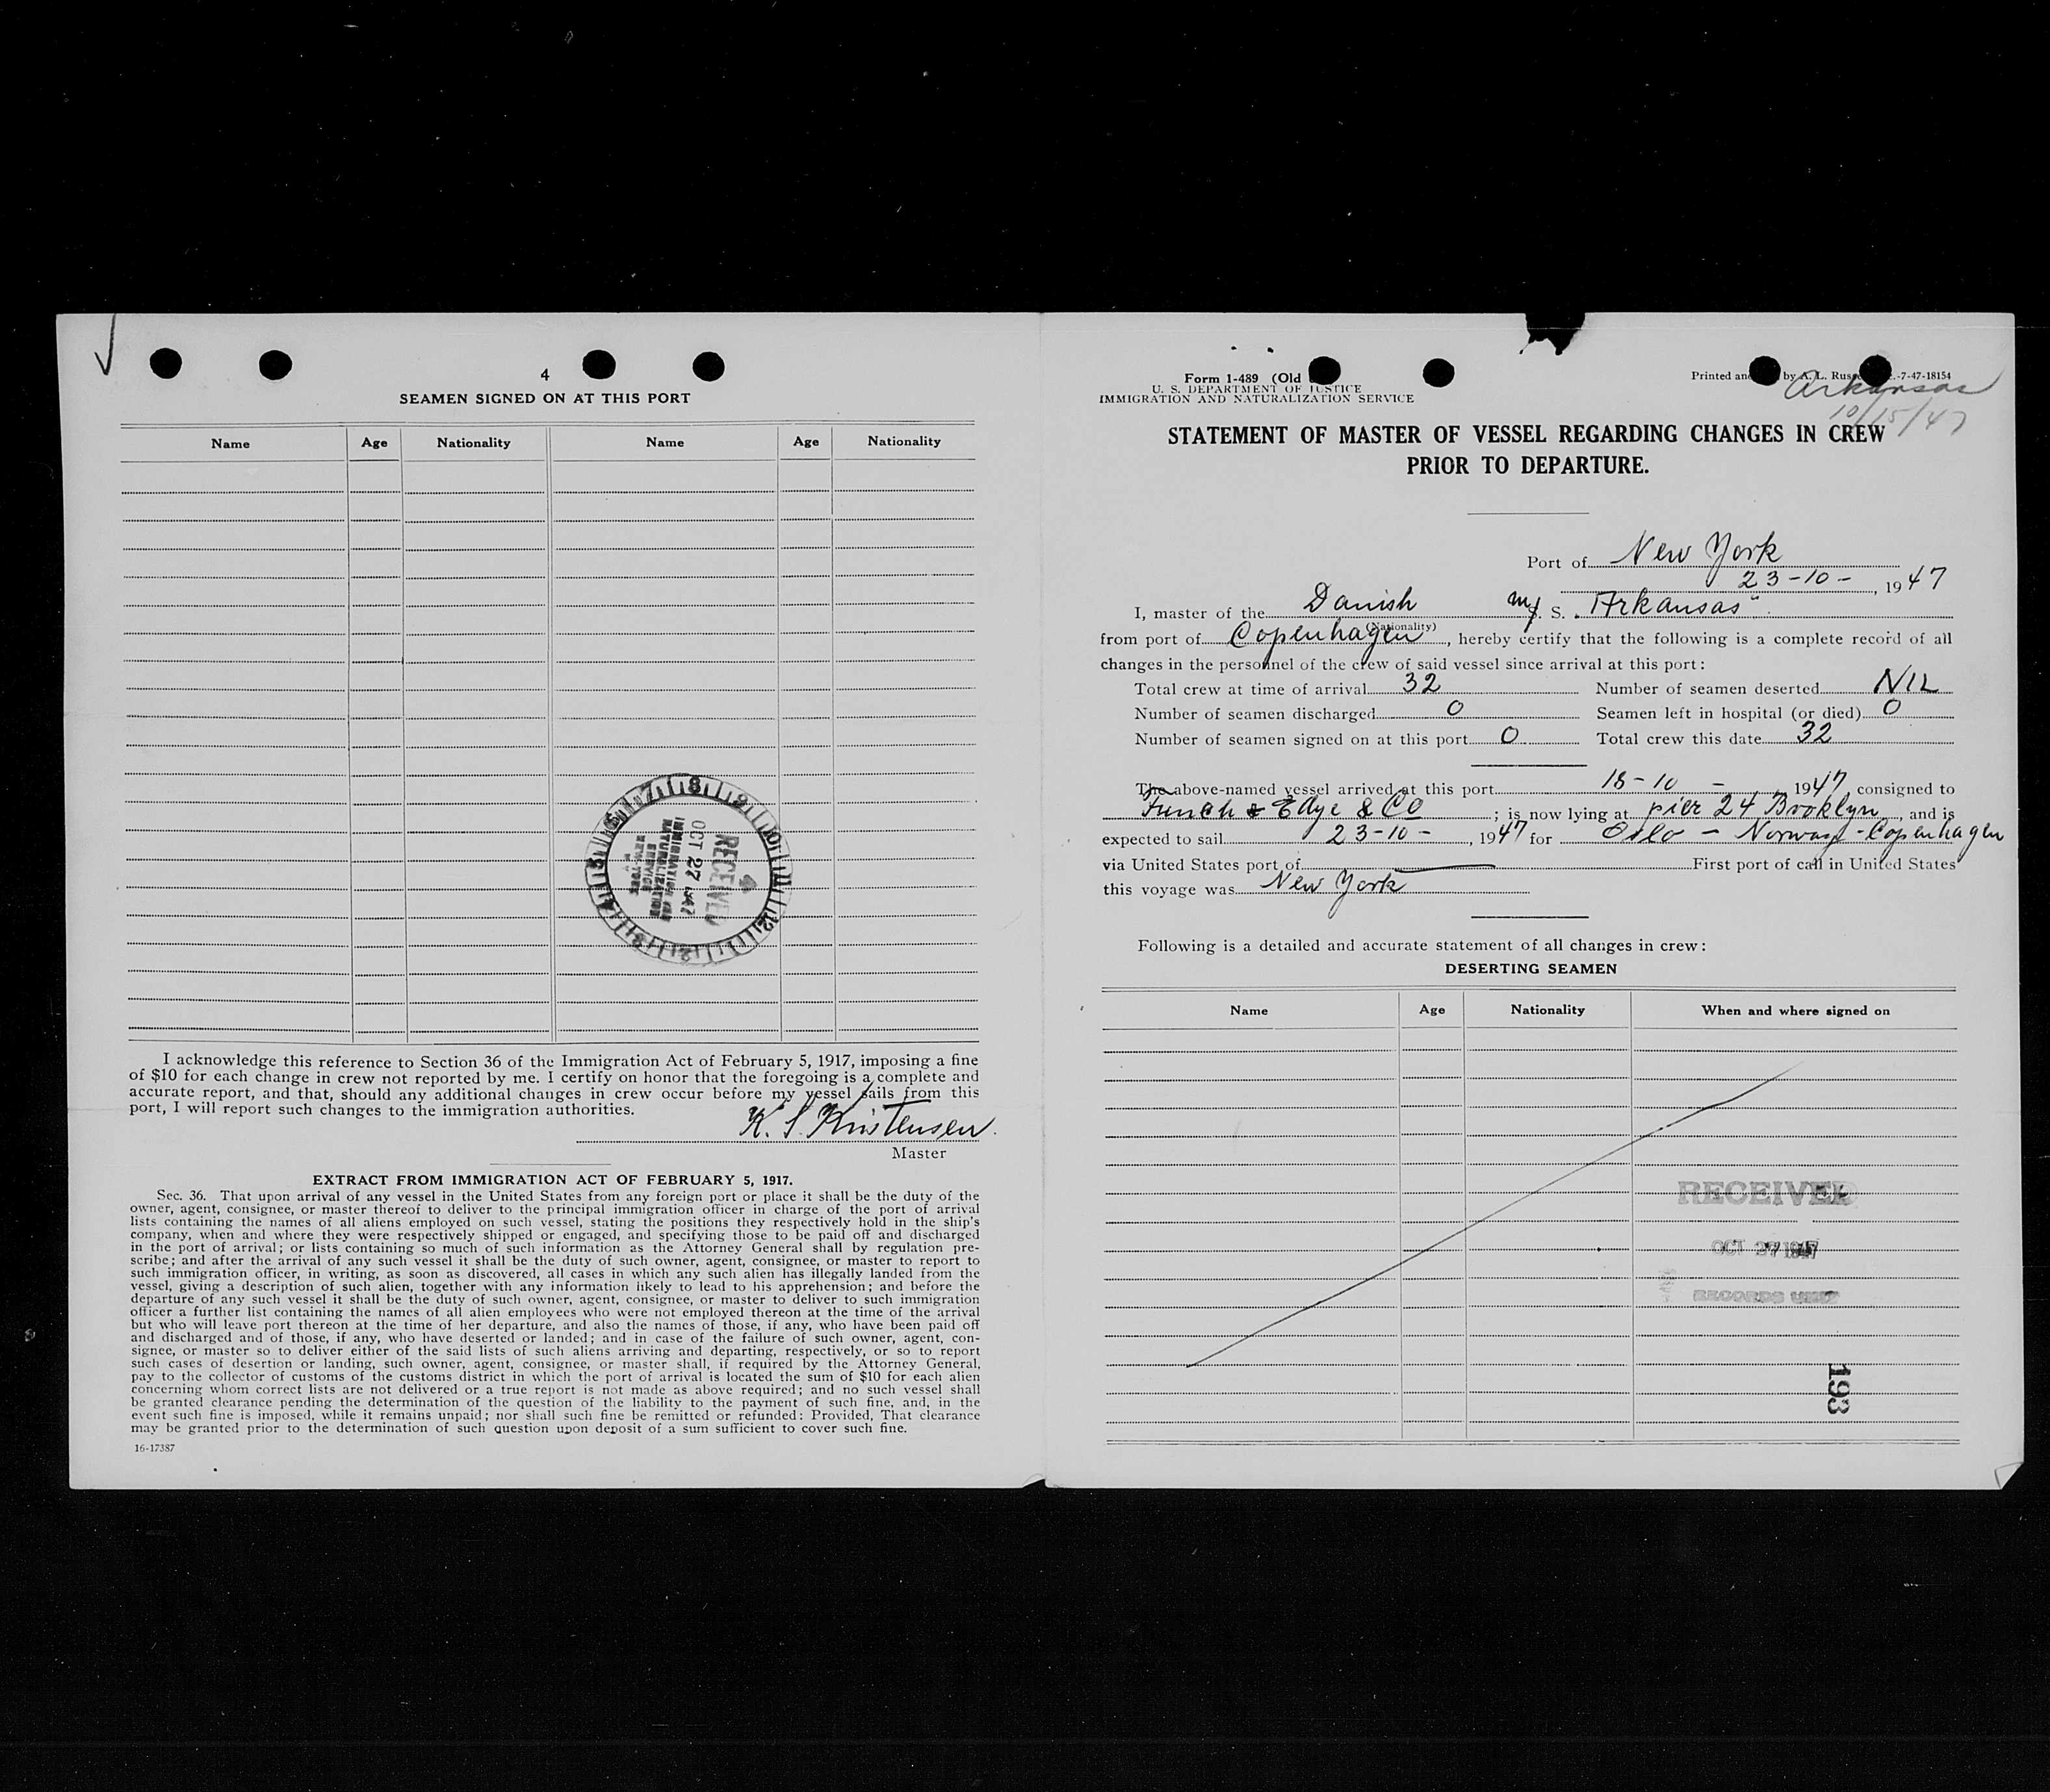 4
SEAMEN SIGNED ON AT THIS PORT
Name Age Nationality Name Age Nationality
RECEIVED
OCT 27 1947
IMMIGRATION AND
NATURALIZATION
SERVICE
NEW YORK
I acknowledge this reference to Section 36 of the Immigration Act of February 5, 1917, imposing a fine
of $10 for each change in crew not reported by me. I certify on honor that the foregoing is a complete and
accurate report, and that, should any additional changes in crew occur before my vessel sails from this
port, I will report such changes to the immigration authorities.
K. S. Kristensen.
Master
EXTRACT FROM IMMIGRATION ACT OF FEBRUARY 5, 1917.
Sec. 36. That upon arrival of any vessel in the United States from any foreign port or place it shall be the duty of the
owner, agent, consignee, or master thereof to deliver to the principal immigration officer in charge of the port of arrival
lists containing the names of all aliens employed on such vessel, stating the positions they respectively hold in the ship's
company, when and where they were respectively shipped or engaged, and specifying those to be paid off and discharged
in the port of arrival; or lists containing so much of such information as the Attorney General shall by regulation pre-
scribe; and after the arrival of any such vessel it shall be the duty of such owner, agent, consignee, or master to report to
such immigration officer, in writing, as soon as discovered, all cases in which any such alien has illegally landed from the
vessel, giving a description of such alien, together with any information likely to lead to his apprehension; and before the
departure of any such vessel it shall be the duty of such owner, agent, consignee, or master to deliver to such immigration
officer a further list containing the names of all alien employees who were not employed thereon at the time of the arrival
but who will leave port thereon at the time of her departure, and also the names of those, if any, who have been paid off
and discharged and of those, if any, who have deserted or landed; and in case of the failure of such owner, agent, con-
signee, or master so to deliver either of the said lists of such aliens arriving and departing, respectively, or so to report
such cases of desertion or landing, such owner, agent, consignee, or master shall, if required by the Attorney General,
pay to the collector of customs of the customs district in which the port of arrival is located the sum of $10 for each alien
concerning whom correct lists are not delivered or a true report is not made as above required; and no such vessel shall
be granted clearance pending the determination of the question of the liability to the payment of such fine, and, in the
event such fine is imposed, while it remains unpaid; nor shall such fine be remitted or refunded: Provided, That clearance
may be granted prior to the determination of such question upon deposit of a sum sufficient to cover such fine.
16-17387
Form 1-489 (Old
U. S. DEPARTMENT OF JUSTICE
IMMIGRATION AND NATURALIZATION SERVICE
Printed and by A. L. Russ -7-47-18154
Arkansas
10/15/47
STATEMENT OF MASTER OF VESSEL REGARDING CHANGES IN CREW
PRIOR TO DEPARTURE.
Port of New York
23-10-, 1947
I, master of the Danish M/S. S. "Arkansas"
(Nationality)
from port of Copenhagen, hereby certify that the following is a complete record of all
changes in the personnel of the crew of said vessel since arrival at this port:
Total crew at time of arrival 32 Number of seamen deserted NIL
Number of seamen discharged 0 Seamen left in hospital (or died) 0
Number of seamen signed on at this port 0 Total crew this date 32
The above-named vessel arrived at this port 18-10- 1947 consigned to
Funch & Edye & Co; is now lying at pier 24 Brooklyn, and is
expected to sail 23-10-, 1947 for Oslo - Norway - Copenhagen
via United States port of First port of call in United States
this voyage was New York
Following is a detailed and accurate statement of all changes in crew:
DESERTING SEAMEN
Name Age Nationality When and where signed on
RECEIVED
OCT 27 1947
RECORDS UNIT
193